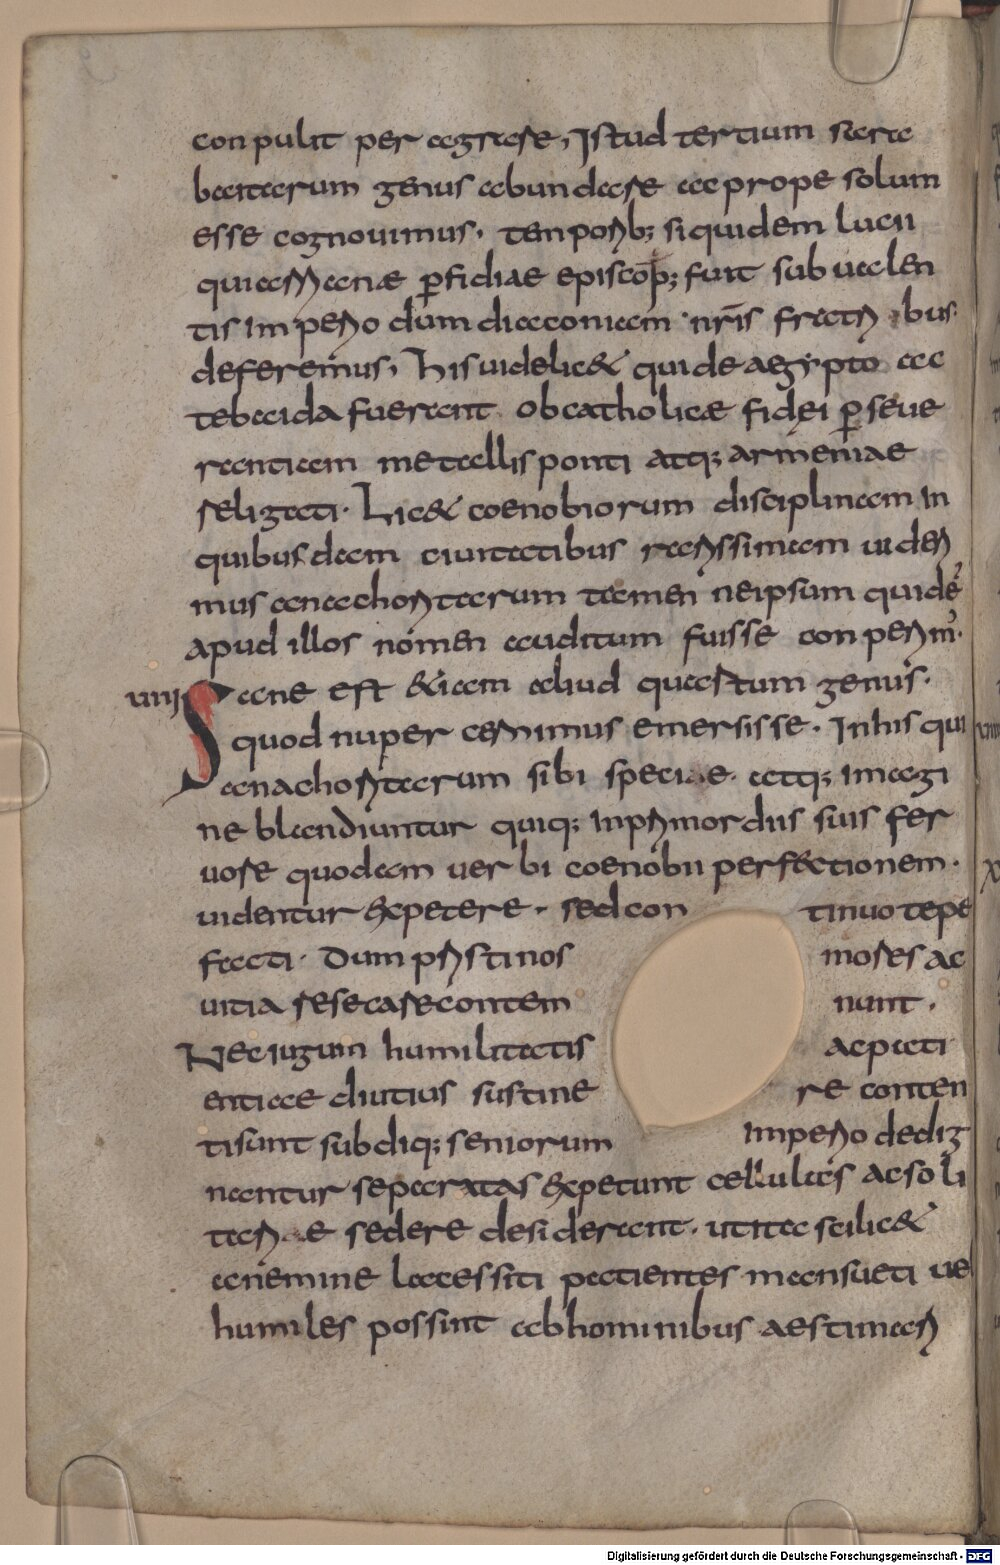 conpulit per agrase, Istud tertium sara
baitarum genus abundase ac prope solum
esse cognouimus. temporib; siquidem lucii
qui arrianae ꝑfidiae episcop; fuit sub ualen
tis imperio dum diaconiam nr̄is fratri bus
deferemus, his uidelic& qui de aegypto ac
tebaida fuerant ob catholicae fidei ꝑseue
rantiam metallis ponti atq; armeniae
religati. Lic& coenobiorum disciplinam in
quibusdam ciuitatibus rarissimam uideri
mus anachoritarum tamen ne ipsum quidē
apud illos nomen auditum fuisse conperim̄.
uiiii Sane est &iam aliud quartum genus.
quod nuper cernimus emersisse. In his qui
anachoritarum sibi speciae. atq; imagi
ne blandiuntur quiq; inprimordiis suis fer
uore quodam uerbi coenobii perf&ctionem.
uidentur &xpetere. sed continuo tepe
facti. Dum pristinos moses ac
uitia resecare contemnunt.
Nec iugum humilitatis ac pati
entiae diutius sustinere conten
ti sunt subdiq; seniorum imperio dedig
nantur separatas &xpetunt cellulas ac soli
tariae sedere desiderant. ut ita scilic&
a nemine lacessiti patientes mansueti ue
humiles possint ab hominibus aestimari
Digitalisierung gefördert durch die Deutsche Forschungsgemeinschaft - DFG